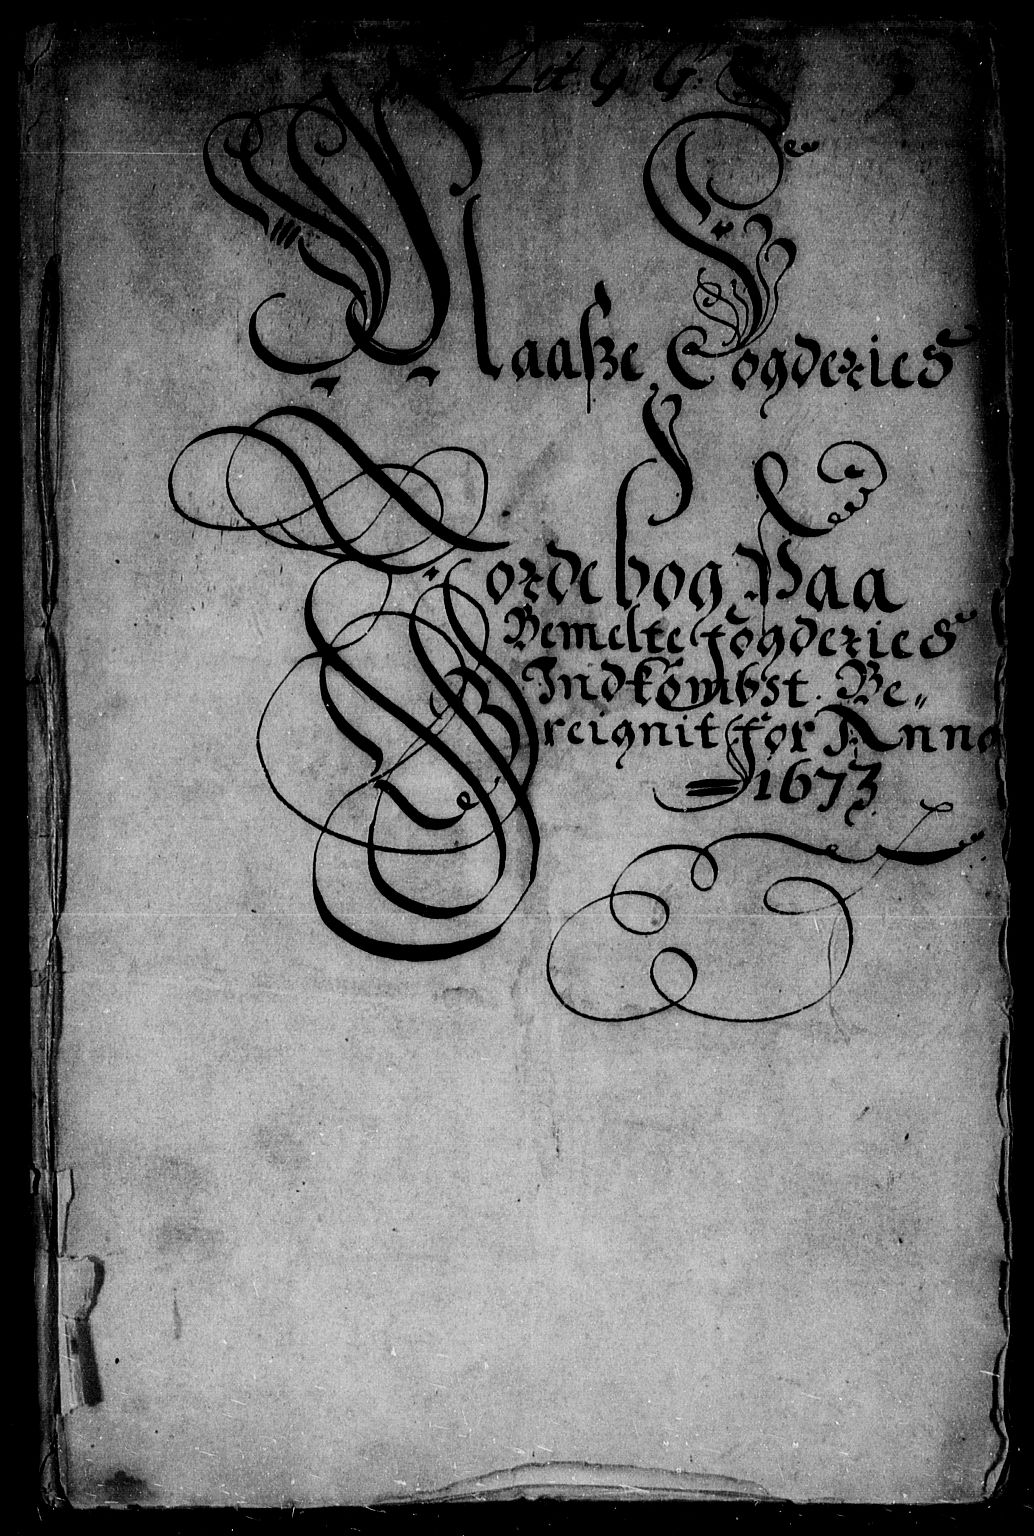 Lit. G. G.
Maaße Fogderies
Jordebog Paa
Bemelte fögderies
Indkömbst. Be„
reignit for Anno
1673